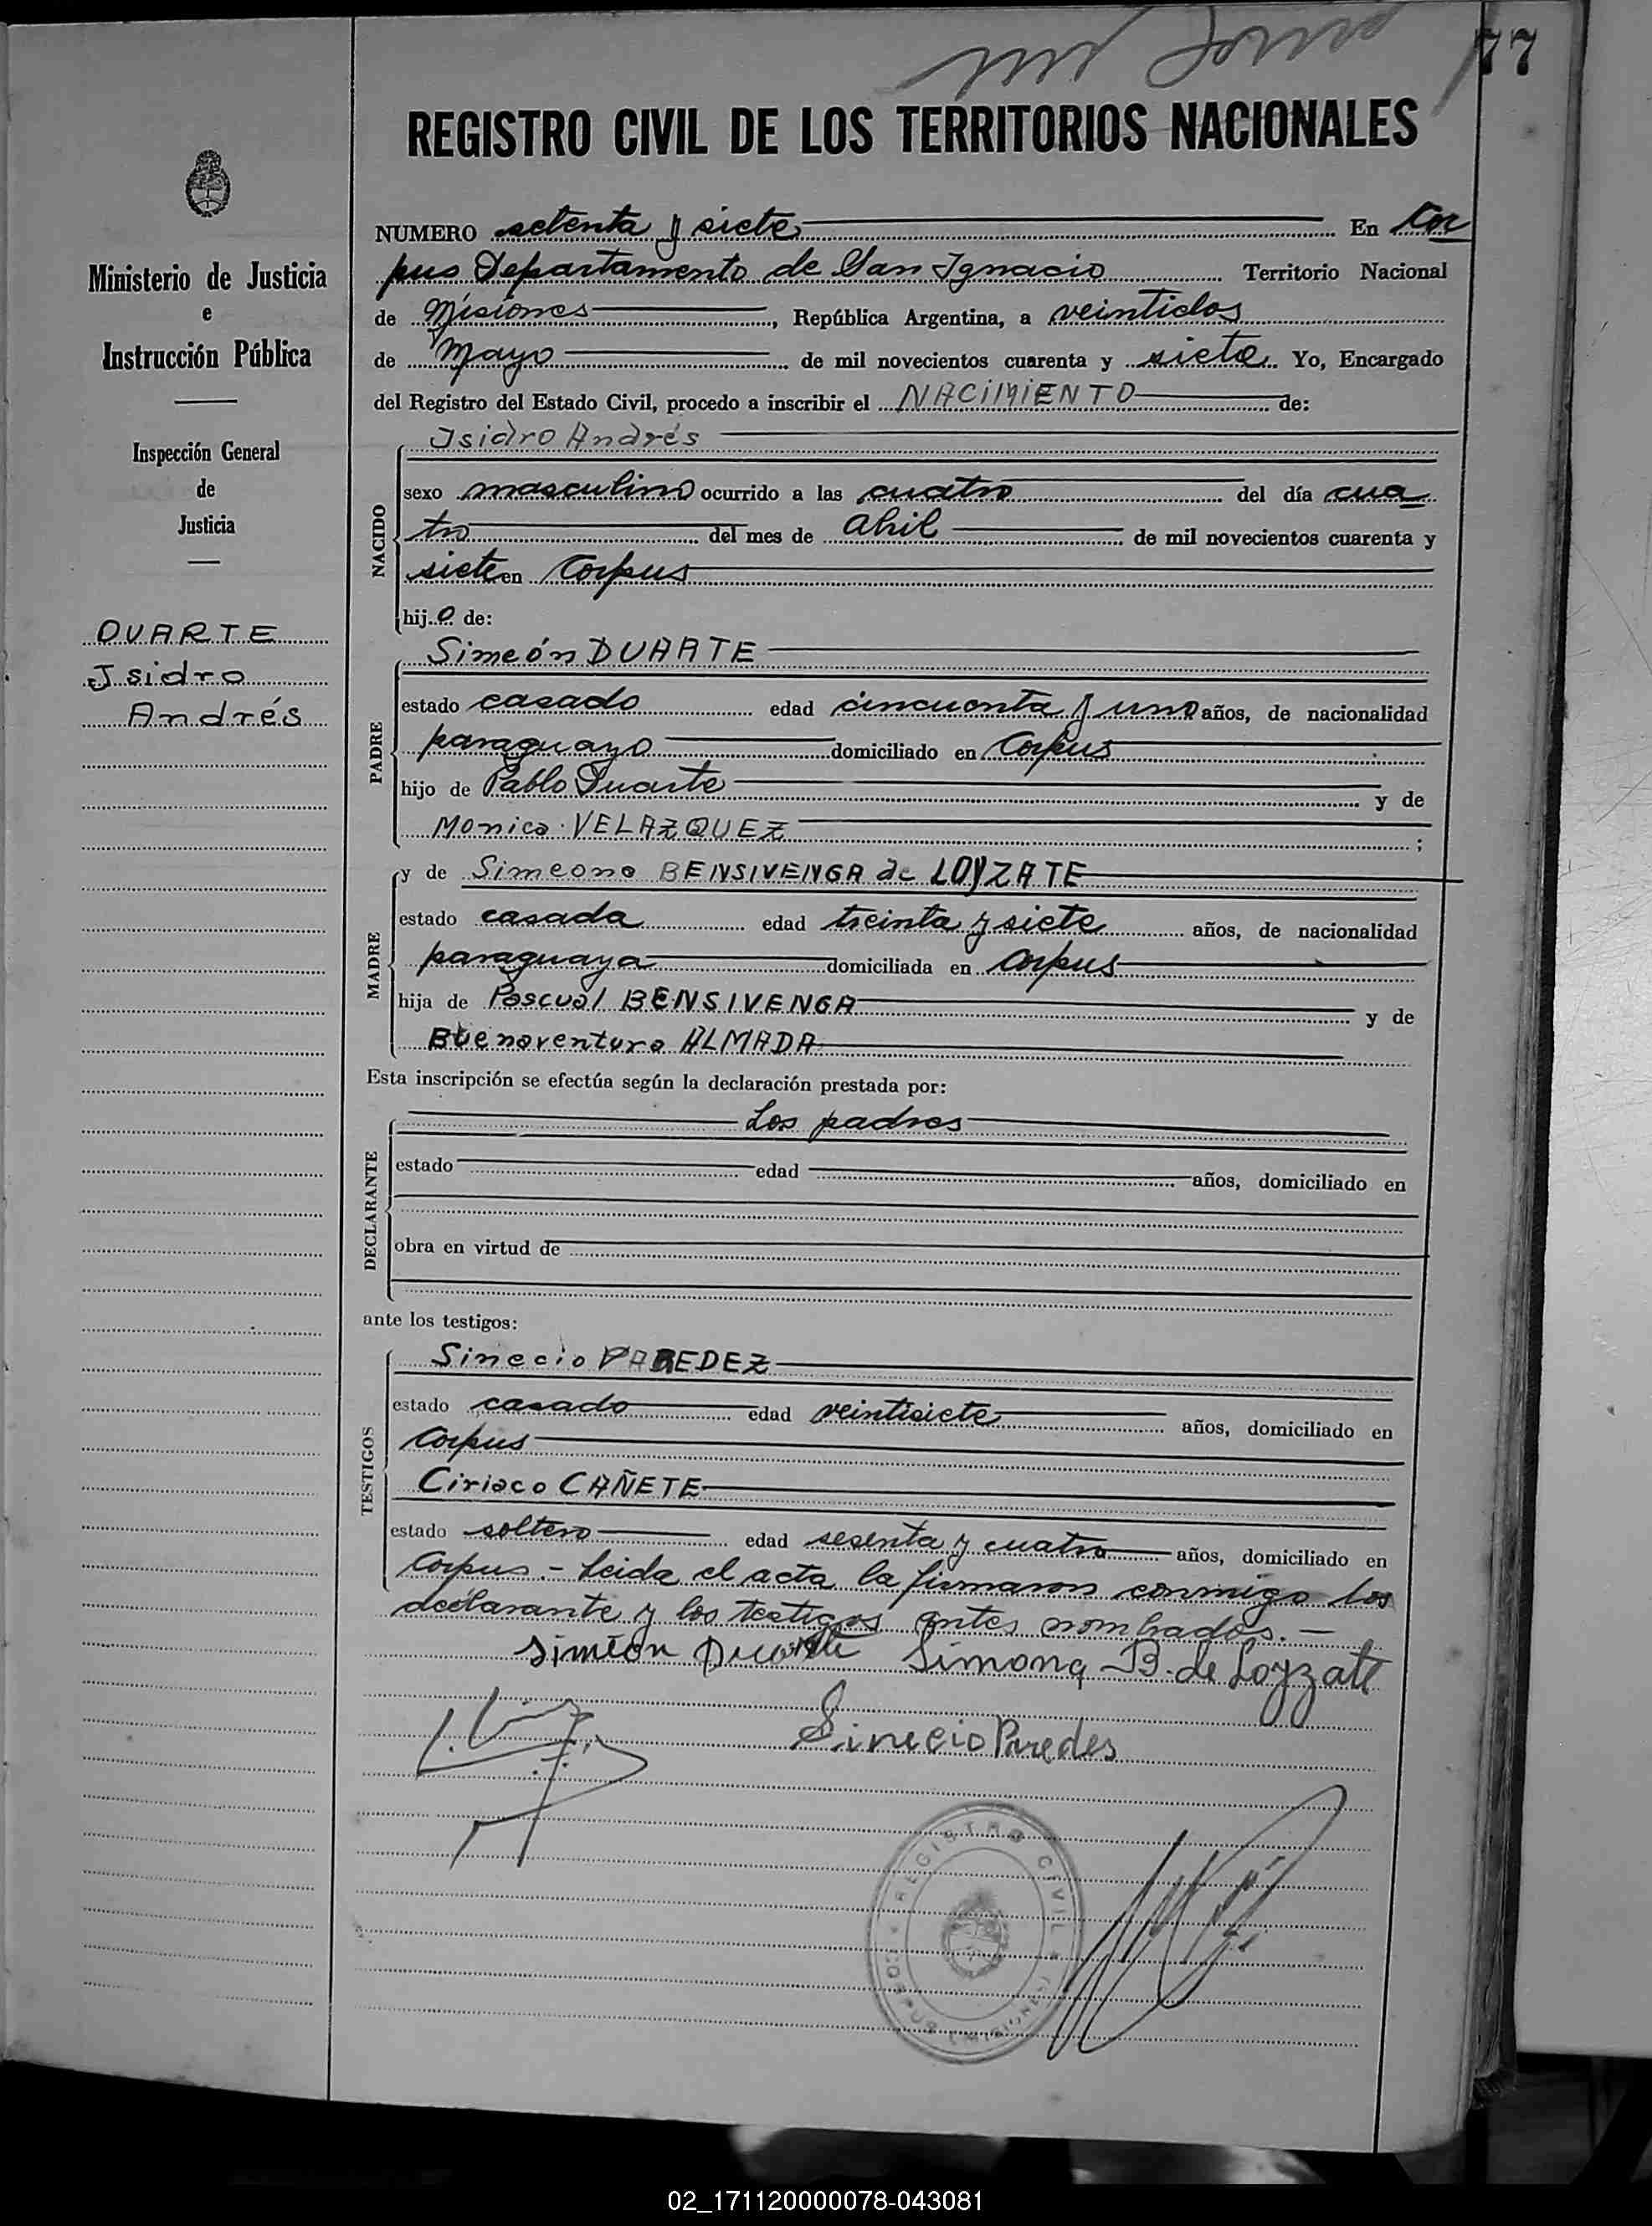 77
REGISTRO CIVIL DE LOS TERRITORIOS NACIONALES
Ministerio de Justicia
e
Instrucción Pública
Inspección General
de
Justicia
DUARTE
Isidro
Andrés
NUMERO setenta y siete En Cor
pus Departamento de San Ignacio Territorio Nacional
de Misiones, República Argentina, a veintidos
de Mayo de mil novecientos cuarenta y siete. Yo, Encargado
del Registro del Estado Civil, procedo a inscribir el NACIMIENTO de:
NACIDO
Isidro Andrés
sexo masculino ocurrido a las cuatro del día cua
tro del mes de abril de mil novecientos cuarenta y
siete en Corpus
hijo de:
PADRE
Simeón DUARTE
estado casado edad cincuenta y uno años, de nacionalidad
paraguayo domiciliado en Corpus
hijo de Pablo Duarte y de
Monica VELAZQUEZ ;
MADRE
y de Simeona BENSIVENGA de LOYZATE
estado casada edad treinta y siete años, de nacionalidad
paraguaya domiciliada en Corpus
hija de Pascual BENSIVENGA y de
Buenaventura ALMADA
Esta inscripción se efectúa según la declaración prestada por:
DECLARANTE
Los padres
estado edad años, domiciliado en
obra en virtud de
ante los testigos:
TESTIGOS
Sinecio PAREDEZ
estado casado edad veintisiete años, domiciliado en
Corpus
Ciriaco CAÑETE
estado soltero edad sesenta y cuatro años, domiciliado en
Corpus.- Leida el acta la firmaron conmigo los
declarante y los testigos antes nombrados.-
Simeón Duarte Simona B. de Loyzate
Sinecio Paredes
REGISTRO CIVIL
CORPUS (MISIONES)
02_171120000078-043081